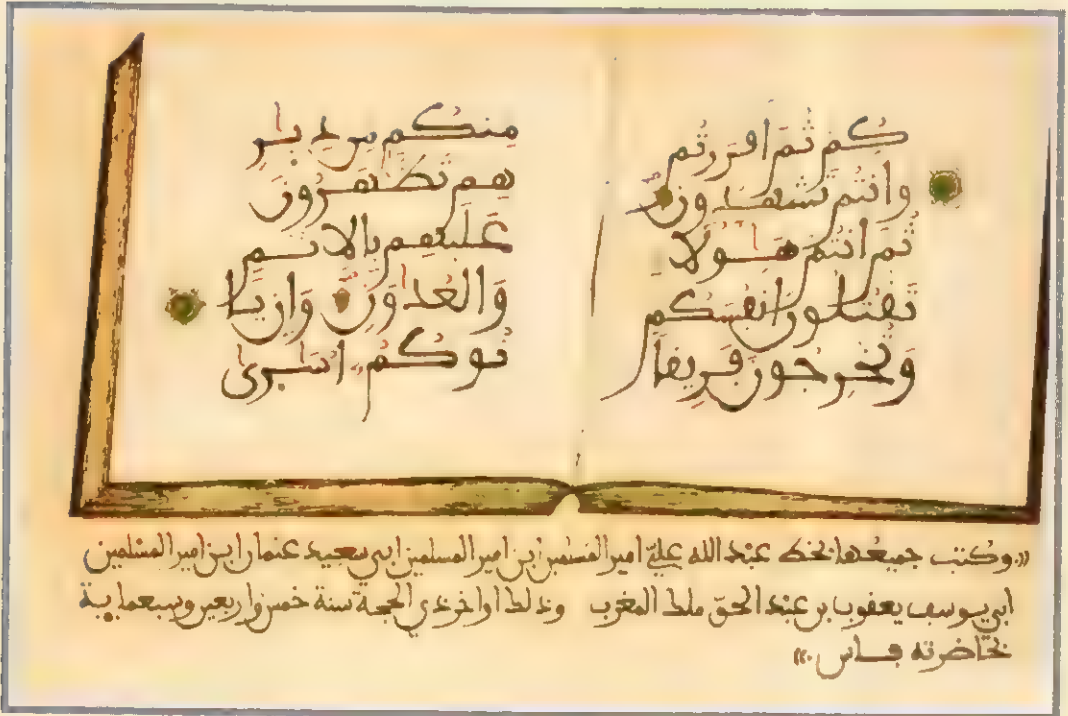 كُمْ ثُمَّ أَقْرَرْتُمْ
وَأَنتُمْ تَشْهَدُونَ
ثُمَّ أَنتُمْ هَٰؤُلَاءِ
تَقْتُلُونَ أَنفُسَكُمْ
وَتُخْرِجُونَ فَرِيقًا
مِنكُم مِّن دِيَٰرِ
هِمْ تَظَّٰهَرُونَ
عَلَيْهِم بِالْإِثْمِ
وَالْعُدْوَٰنِ وَإِن يَا
تُوكُمْ أُسَٰرَىٰ
«وكتب جميعها بخط عبد الله علي أمير المسلمين ابن أمير المسلمين أبي سعيد عثمان ابن أمير المسلمين
أبي يوسف يعقوب بن عبد الحق ملك المغرب وذلك أواخر ذي الحجة سنة خمس وأربعين وسبعماية
بحاضرته فاس.»